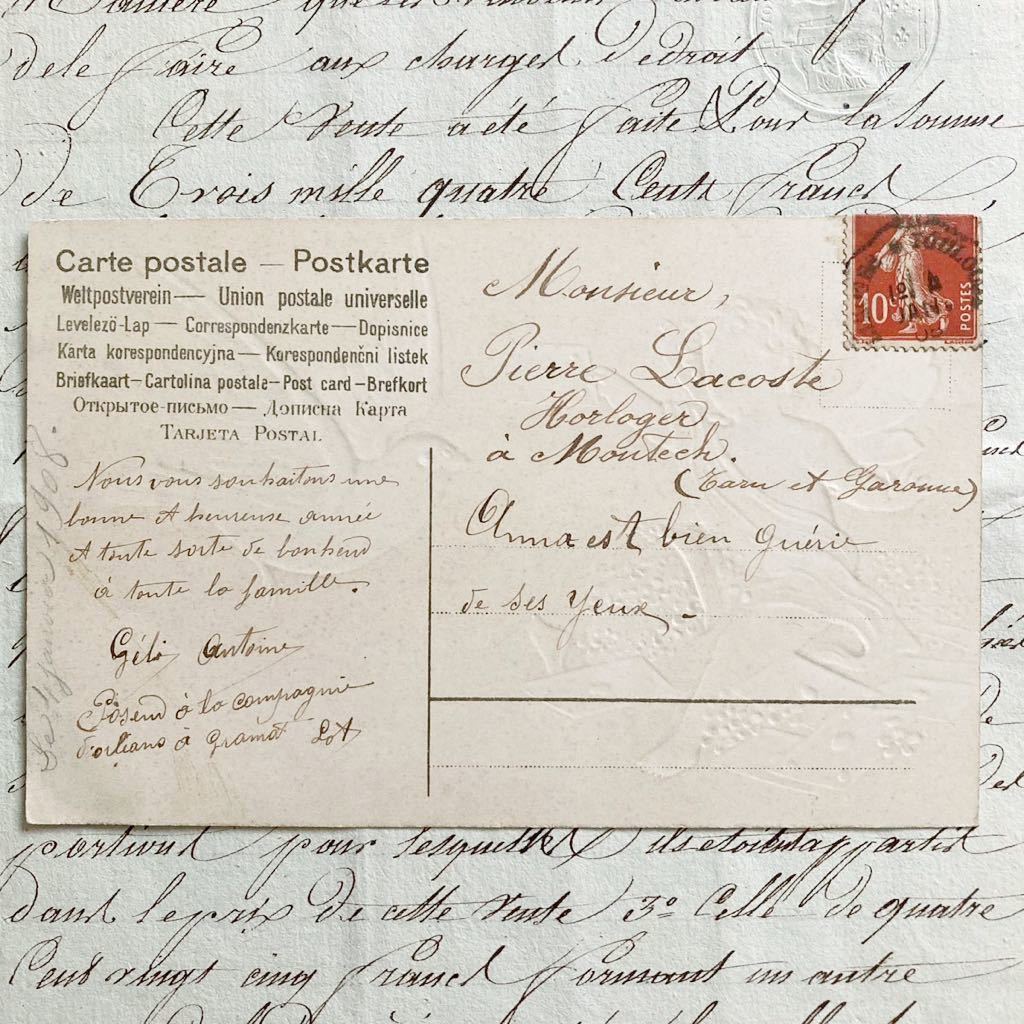 dele faire aux charges de droit
Cette Vente a été faite Pour la Somme
de Trois mille quatre Cents francs
Carte postale — Postkarte
Weltpostverein — Union postale universelle
Levelező-Lap — Correspondenzkarte — Dopisnice
Karta korespondencyjna — Korespondenční listek
Briefkaart — Cartolina postale — Post card — Brefkort
Открытое-письмо — Дописна Карта
TARJETA POSTAL
Nous vous souhaitons une
bonne et heureuse année
et toute sorte de bonheur
à toute la famille.
Antoine
à la compagnie
d'orléans à gramat Lot
Le 4 janvier 1908.
Monsieur,
Pierre Lacoste
Horloger
à Montech.
(Tarn et Garonne)
Anna est bien guérie
de ses yeux.
10
POSTES
JANV
pour lesquelles ils etoient appartit
dans le prix de cette Vente 3º Celle de quatre
Cent vingt cinq francs formant un autre